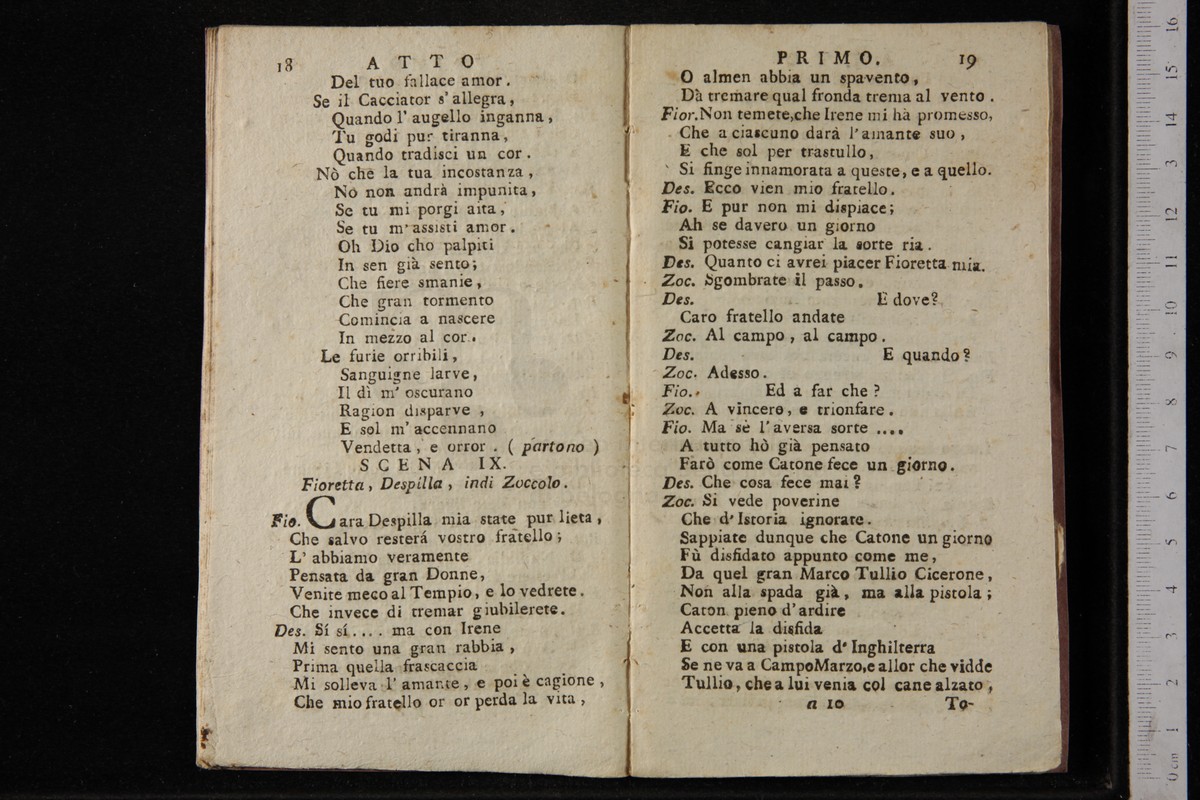 18 ATTO
Del tuo fallace amor.
Se il Cacciator s'allegra,
Quando l'augello inganna,
Tu godi pur tiranna,
Quando tradisci un cor.
Nò che la tua incostanza,
Nò non andrà impunita,
Se tu mi porgi aita,
Se tu m'assisti amor.
Oh Dio cho palpiti
In sen già sento;
Che fiere smanie,
Che gran tormento
Comincia a nascere
In mezzo al cor.
Le furie orribili,
Sanguigne larve,
Il dì m'oscurano
Ragion disparve,
E sol m'accennano
Vendetta, e orror. (partono)
SCENA IX.
Fioretta, Despilla, indi Zoccolo.
Fio. Cara Despilla mia state pur lieta,
Che salvo resterá vostro fratello;
L'abbiamo veramente
Pensata da gran Donne,
Venite meco al Tempio, e lo vedrete.
Che invece di tremar giubilerete.
Des. Sí sí.... ma con Irene
Mi sento una gran rabbia,
Prima quella frascaccia
Mi solleva l'amante, e poi è cagione,
Che mio fratello or or perda la vita,
PRIMO. 19
O almen abbia un spavento,
Dà tremare qual fronda trema al vento.
Fior. Non temete, che Irene mi hà promesso,
Che a ciascuno darà l'amante suo,
E che sol per trastullo,
Si finge innamorata a queste, e a quello.
Des. Ecco vien mio fratello.
Fio. E pur non mi dispiace;
Ah se davero un giorno
Si potesse cangiar la sorte ria.
Des. Quanto ci avrei piacer Fioretta mia.
Zoc. Sgombrate il passo.
Des. E dove?
Caro fratello andate
Zoc. Al campo, al campo.
Des. E quando?
Zoc. Adesso.
Fio. Ed a far che?
Zoc. A vincero, e trionfare.
Fio. Ma sè l'aversa sorte ....
A tutto hò già pensato
Farò come Catone fece un giorno.
Des. Che cosa fece mai?
Zoc. Si vede poverine
Che d'Istoria ignorate.
Sappiate dunque che Catone un giorno
Fù disfidato appunto come me,
Da quel gran Marco Tullio Cicerone,
Non alla spada già, ma alla pistola;
Caton pieno d'ardire
Accetta la disfida
E con una pistola d'Inghilterra
Se ne va a Campo Marzo, e allor che vidde
Tullio, che a lui venia col cane alzato,
a 10 To-
0 cm 1 2 3 4 5 6 7 8 9 10 11 12 13 14 15 16